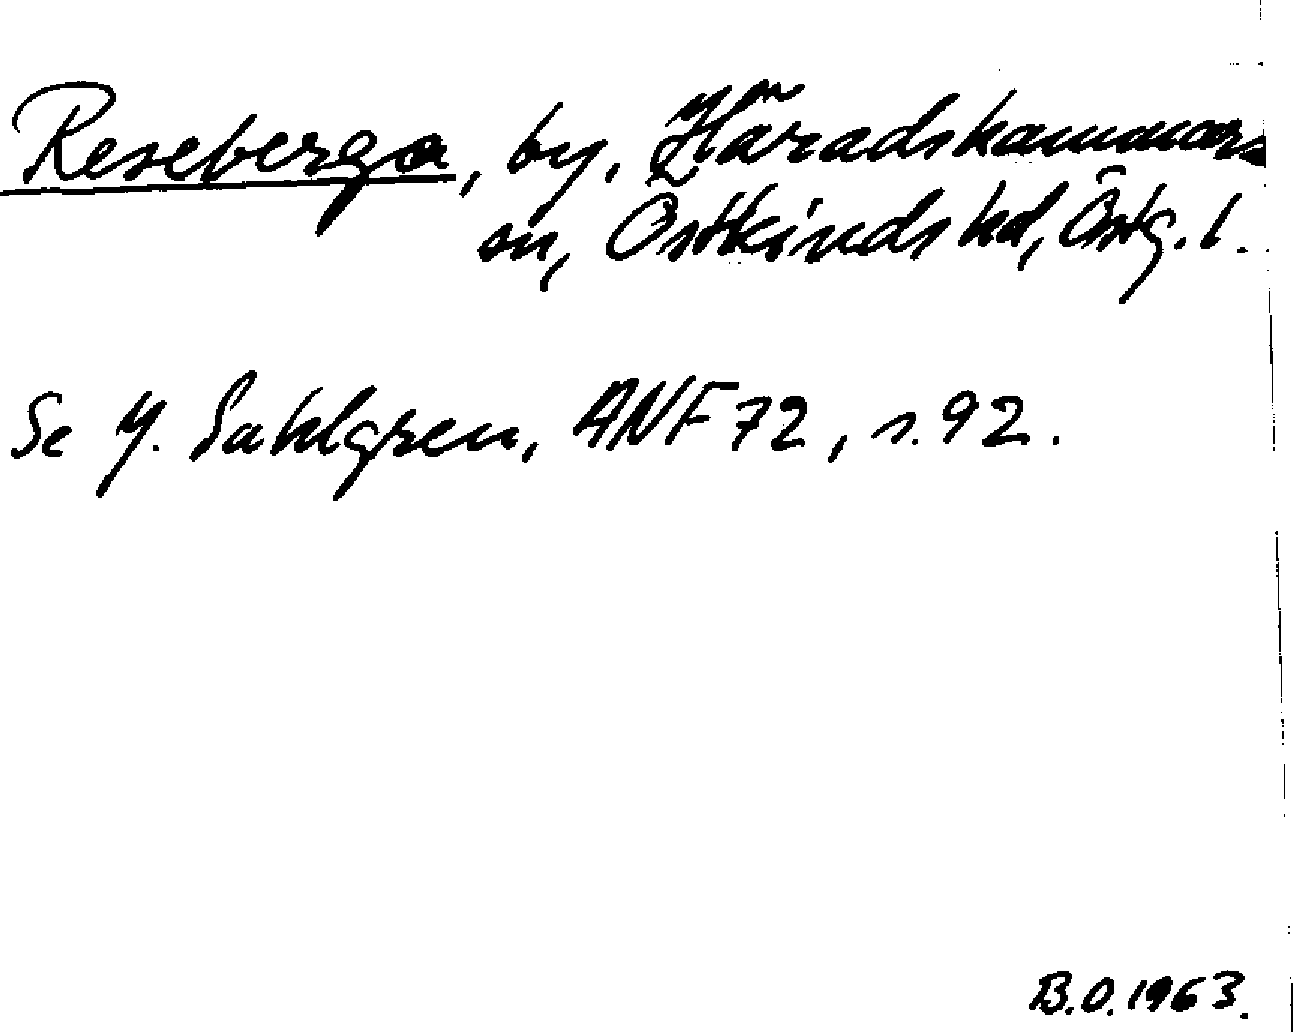 Reseberga, by, Häradshammars
sn, Östkinds hd, Östg. l.
Se J. Sahlgren, ANF 72, s. 92.
B.O. 1963.